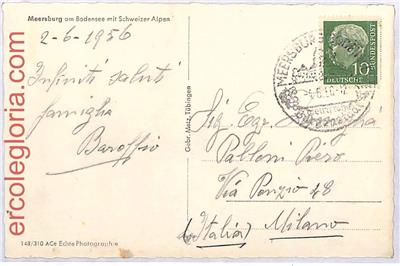 Meersburg am Bodensee mit Schweizer Alpen
2-6-1956
Infiniti saluti
famiglia
Baroffio
Gebr. Metz, Tübingen
148/310 ACe Echte Photographie
DEUTSCHE
BUNDESPOST
10
MEERSBURG
Sig. Egr.
Pabloni Piero
Via Ponzio 48
(Italia) Milano
ercolegloria.com